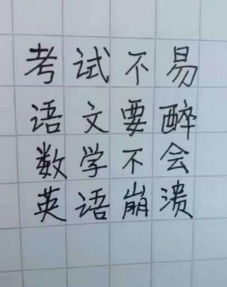 考试不易
语文要醉
数学不会
英语崩溃